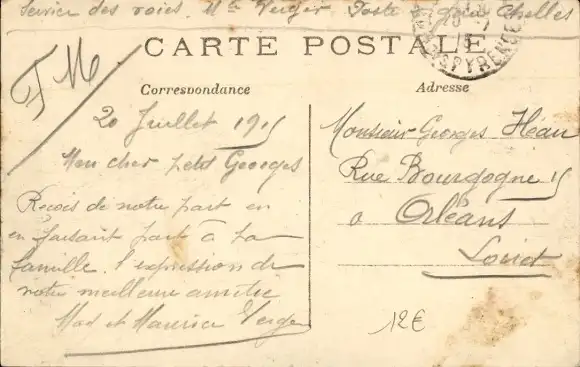 Service des voies. Mce Verger Poste Chelles
CARTE POSTALE
FM
Correspondance
20 Juillet 1915
Mon cher petit Georges
Reçois de notre part en
en faisant part à ta
famille. l'expression de
notre meilleure amitié
Mad et Maurice Verger
Adresse
Monsieur Georges Héau
Rue Bourgogne 15
à Orléans
Loiret
12€